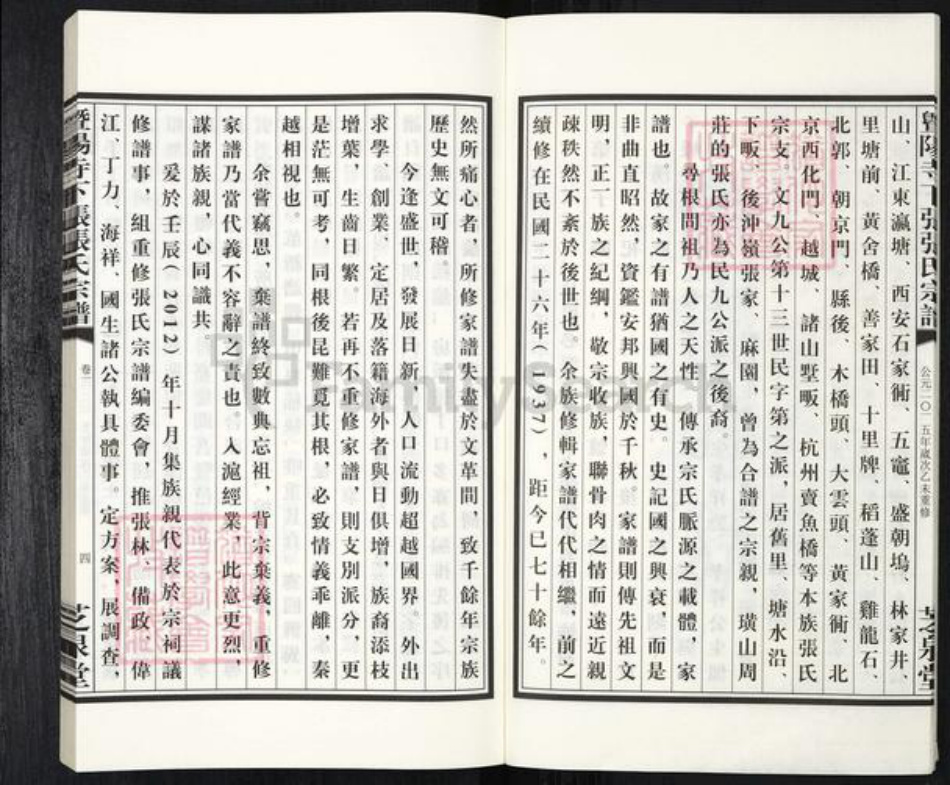 山、江東瀛塘、西安石家衕、五竈、盛朝塢、林家井、
里塘前、黃舍橋、善家田、十里牌、稻蓬山、雞龍石、
北郭、朝京門、縣後、木橋頭、大雲頭、黃家衕、北
京西化門、越城、諸山墅畈、杭州賣魚橋等本族張氏
宗支。文九公第十三世民字第之派，居舊里、塘水沿、
下畈、後沖嶺張家、麻園，曾為合譜之宗親，璜山周
莊的張氏亦為民九公派之後裔。
尋根問祖乃人之天性，傳承宗氏脈源之載體，家
譜也。故家之有譜猶國之有史。史記國之興衰，而是
非曲直昭然，資鑑安邦興國於千秋。家譜則傳先祖文
明，正一族之紀綱，敬宗收族，聯骨肉之情而遠近親
疎秩然不紊於後世也。余族修輯家譜代代相繼，前之
續修在民國二十六年(1937)，距今已七十餘年。
然所痛心者，所修家譜失盡於文革間，致千餘年宗族
歷史無文可稽。
今逢盛世，發展日新，人口流動超越國界。外出
求學、創業、定居及落籍海外者與日俱增，族裔添枝
增葉，生齒日繁。若再不重修家譜，則支別派分，更
是茫無可考，同根後昆難覓其根，必致情義乖離，秦
越相視也。
余嘗竊思，棄譜終致數典忘祖，背宗棄義，重修
家譜乃當代義不容辭之責也。入滬經業，此意更烈，
謀諸族親，心同識共。
爰於壬辰(2012)年十月集族親代表於宗祠議
修譜事，組重修張氏宗譜編委會，推張林、備政、偉
江、丁力、海祥、國生諸公執具體事。定方案，展調查，
暨陽寺下張張氏宗譜
公元二〇一五年歲次乙未重修
芝泉堂
暨陽寺下張張氏宗譜
卷二
四
芝泉堂
FamilySearch